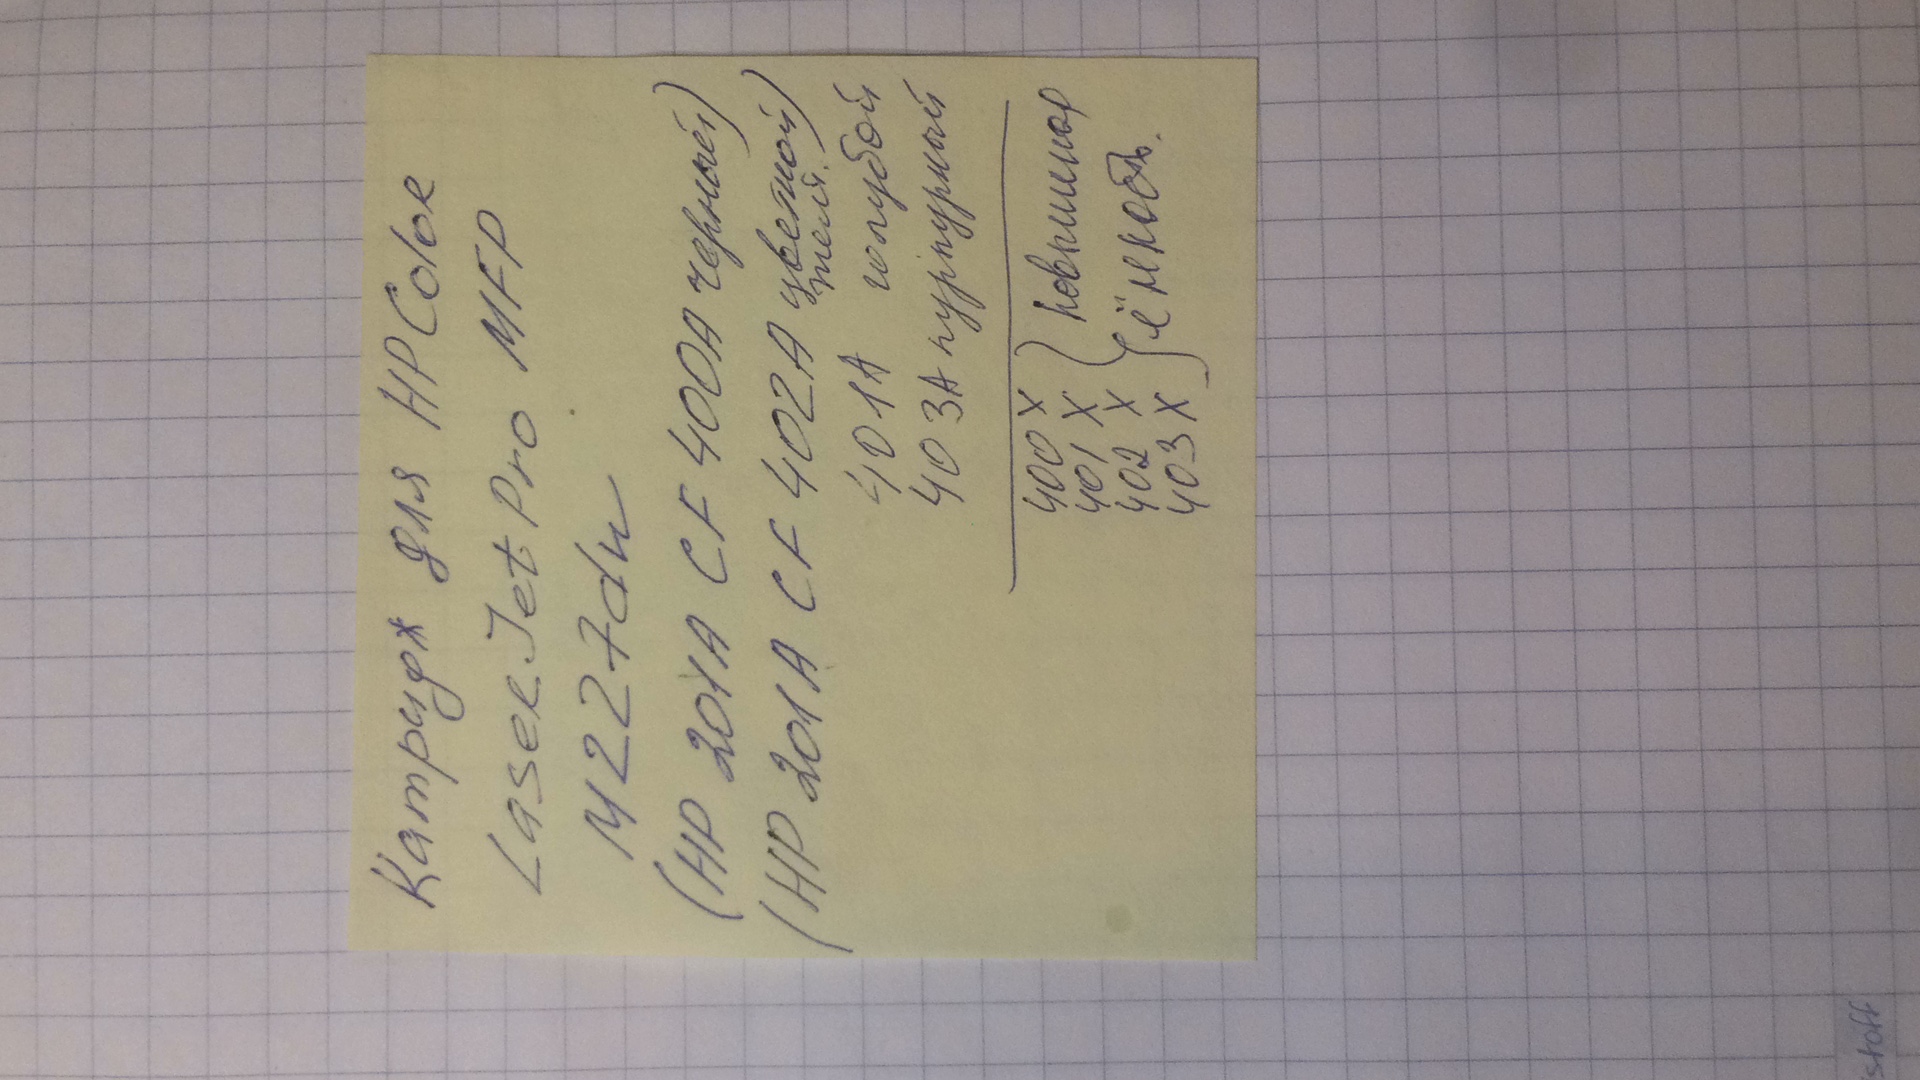 Катридж для HP Color
LaserJet Pro MFP
M227dn
(HP 201A CF 400A черный)
(HP 201A CF 402A цветной)
желт.
401A голубой
403A пурпурный
400X
401X
402X
403X
ёмкость.
staff